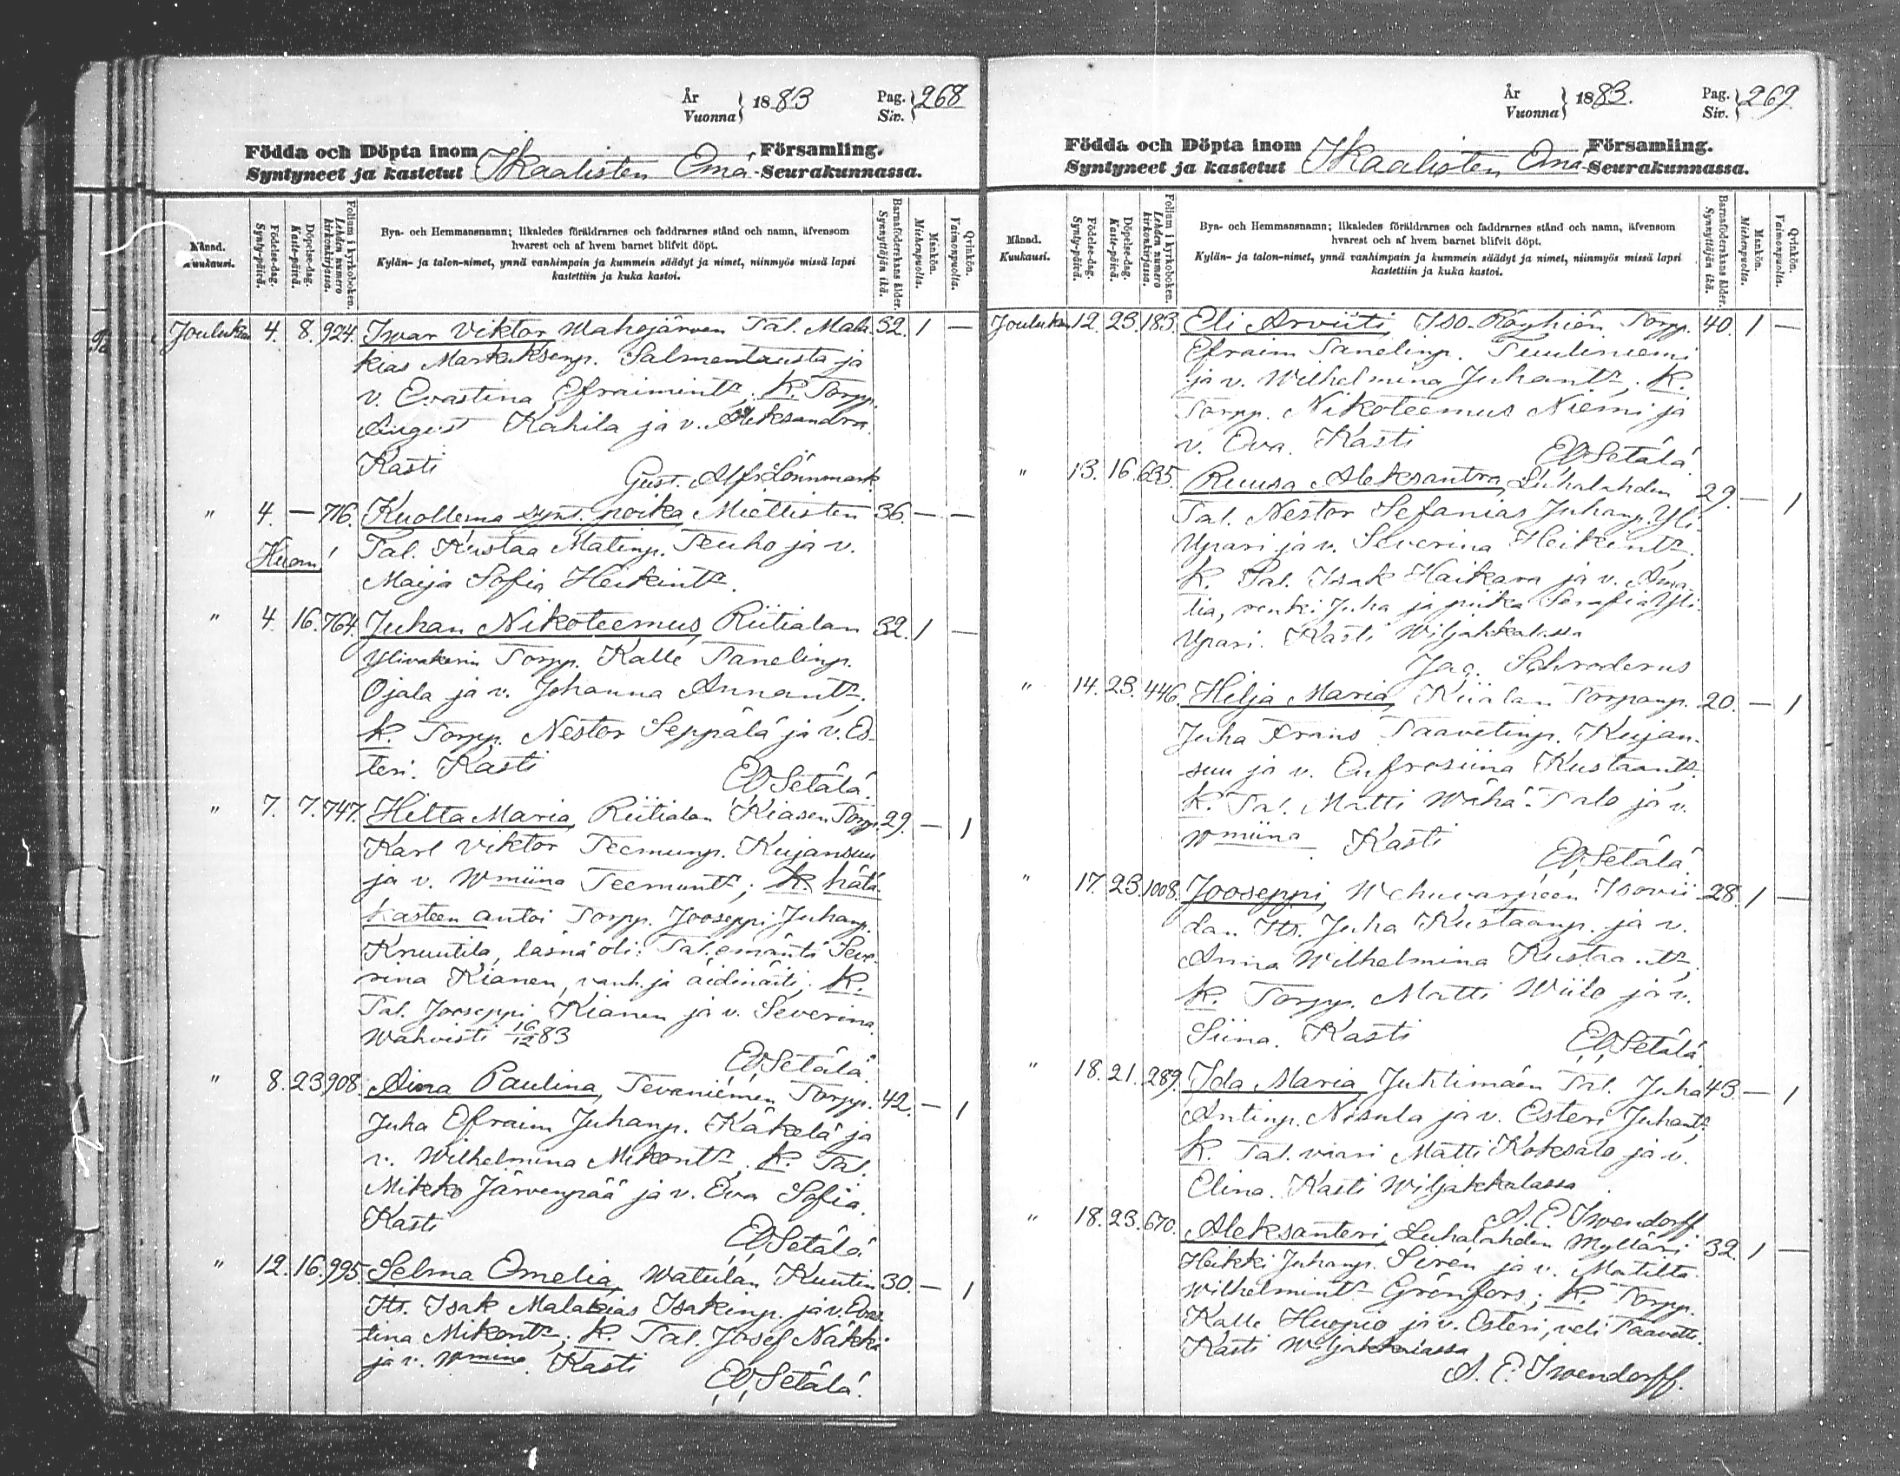 År
Vuonna } 1883
Pag.
Siv. } 268
Födda och Döpta inom Församling.
Syntyneet ja kastetut Ikaalisten Emä- Seurakunnassa.
Månad.
Kuukausi.
Födelse-dag.
Synty-päivä.
Döpelse-dag.
Kaste-päivä.
Folium i kyrkoboken.
Lehden numero kirkonkirjassa.
Bya- och Hemmansnamn; likaledes föräldrarnes och faddrarnes stånd och namn, äfvensom
hvarest och af hvem barnet blifvit döpt.
Kylän- ja talon-nimet, ynnä vanhimpain ja kummein säädyt ja nimet, niinmyös missä lapsi
kastettiin ja kuka kastoi.
Barnaföderskans ålder.
Synnyttäjän ikä.
Mankön.
Miehenpuolta.
Qvinkön.
Vaimonpuolta.
Jouluk. 4. 8. 924. Iwar Viktor, Mahojärven Tal. Mala- 32. 1 —
kias Markuksenp. Salmentausta ja
v. Evastina Efraimintr; K. Torpp.
August Kahila ja v. Aleksandra.
Kasti
Gust. Alfr. Lönnmark.
" 4. — 716. Kuollema synt. poika, Miettisten 36. — —
Huom! Tal. Kustaa Matinp. Teuho ja v.
Maija Sofia Heikintr.
" 4. 16. 764. Juhan Nikoteemus, Riitialan 32. 1 —
Ylivakerin Torpp. Kalle Tanelinp.
Ojala ja v. Johanna Annantr,
K. Torpp. Nestor Seppälä ja v. Es-
teri. Kasti
EV Setälä.
" 7. 7. 747. Hilta Maria, Riitialan Kiasen Torpp. 29. — 1
Karl Viktor Teemunp. Kujansuu
ja v. Wmiina Teemuntr; K. hätä-
kasteen antoi Torpp. Jooseppi Juhanp.
Knuutila, läsnä oli: Tal. emäntä Seve-
rina Kianen, vanh. ja äidinäiti; K.
Tal. Jooseppi Kianen ja v. Severina.
Wahvisti 16/12 83
EV Setälä.
" 8. 23. 908. Aina Paulina, Tevaniemen Torpp. 42. — 1
Juha Efraim Juhanp. Käkelä ja
v. Wilhelmina Mikontr, K. Tal.
Mikko Järvenpää ja v. Eva Sofia.
Kasti
EV Setälä.
" 12. 16. 995. Selma Emelia, Watulan Kuutin 30. — 1
Its. Isak Malakias Isakinp. ja v. Evas-
tina Mikontr; K. Tal. Josef Näkki
ja v. Wmina. Kasti
EV Setälä.
År
Vuonna } 1883.
Pag.
Siv. } 269.
Födda och Döpta inom Församling.
Syntyneet ja kastetut Ikaalisten Emä- Seurakunnassa.
Månad.
Kuukausi.
Födelse-dag.
Synty-päivä.
Döpelse-dag.
Kaste-päivä.
Folium i kyrkoboken.
Lehden numero kirkonkirjassa.
Bya- och Hemmansnamn; likaledes föräldrarnes och faddrarnes stånd och namn, äfvensom
hvarest och af hvem barnet blifvit döpt.
Kylän- ja talon-nimet, ynnä vanhimpain ja kummein säädyt ja nimet, niinmyös missä lapsi
kastettiin ja kuka kastoi.
Barnaföderskans ålder.
Synnyttäjän ikä.
Mankön.
Miehenpuolta.
Qvinkön.
Vaimonpuolta.
Jouluk. 12. 23. 183. Eli Arviiti, Iso-Röyhiön Torpp. 40. 1 —
Efraim Tanelinp. Tuuliniemi
ja v. Wilhelmina Juhantr. K.
Torpp. Nikoteemus Niemi ja
v. Eva. Kasti
EV Setälä.
" 13. 16. 635. Ruusa Aleksantra, Luhalahden 29. — 1
Tal. Nestor Sefanias Juhanp. Yli-
Upari ja v. Severina Heikintr.
K. Tal. Isak Haikara ja v. Ama-
lia, renki Juha ja piika Serafia Yli-
Upari. Kasti Wiljakkalassa
Jac. Schroderus
" 14. 23. 446. Hilja Maria, Kiialan Torpanp. 20. — 1
Juha Frans Taavetinp. Kujan-
suu ja v. Eufrosiina Kustaantr.
K. Tal. Matti Wähä-Talo ja v.
Wmiina. Kasti
EV Setälä.
" 17. 23. 1008. Jooseppi, Wehuvarpeen Isovii- 28. 1 —
dan Its. Juha Kustaanp. ja v.
Anna Wilhelmina Kustaantr,
K. Torpp. Matti Wiilo ja v.
Siina. Kasti
EV Setälä.
" 18. 21. 289. Ida Maria, Juhtimäen Tal. Juha 43. — 1
Antinp. Nisula ja v. Esteri Juhantr.
K. Tal. vaari Matti Koksalo ja v.
Elina. Kasti Wiljakkalassa
A. E. Iwendorff.
" 18. 23. 670. Aleksanteri, Luhalahden Mylläri 32. 1 —
Heikki Juhanp. Sirén ja v. Matilta
Wilhelmintr Grönfors; K. Torpp.
Kalle Huopio ja v. Esteri, veli Taavetti.
Kasti Wiljakkalassa
A. E. Iwendorff.